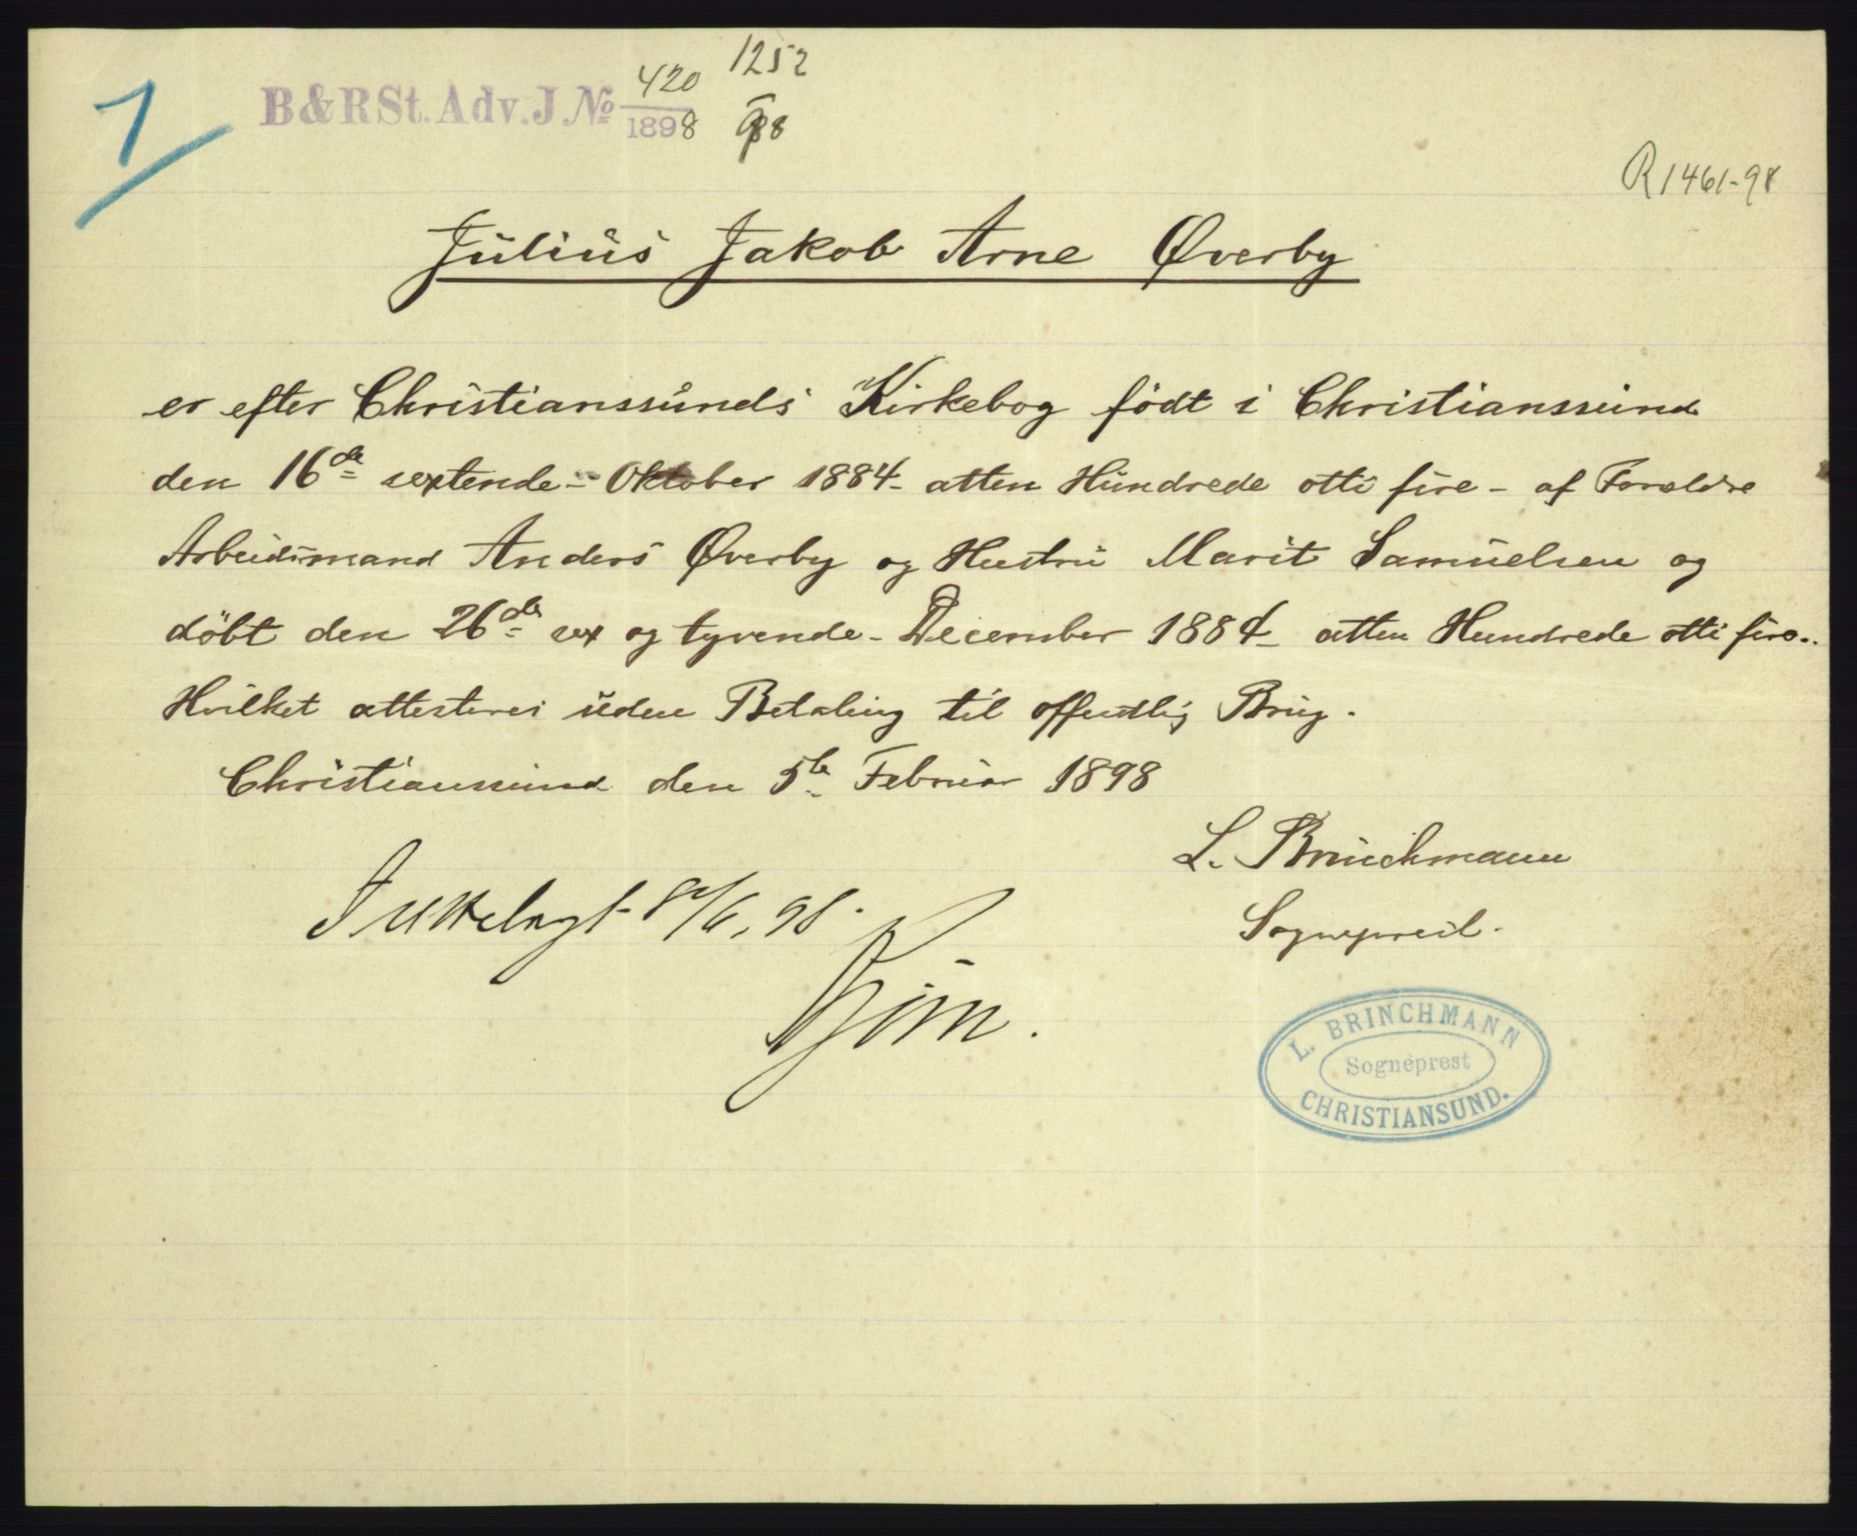 1252
420
1 B & R St. Adv. J. № 1898 98
R 1461-98
Julius Jakob Arne Øverby
er efter Christianssunds Kirkebog födt i Christianssund
den 16de sextende - Oktober 1884 - atten Hundrede otti fire - af Forældre
Arbeidsmand Anders Øverby og Hustru Marit Samuelsen og
döbt den 26de sex og tyvende - December 1884 - atten Hundrede otti fire..
Hvilket attesteres uden Betaling til offentlig Brug.
Christianssund den 5te Februar 1898
L. Brinchmann
Sognepræst.
98.
L. BRINCHMANN
Sogneprest
CHRISTIANSUND.